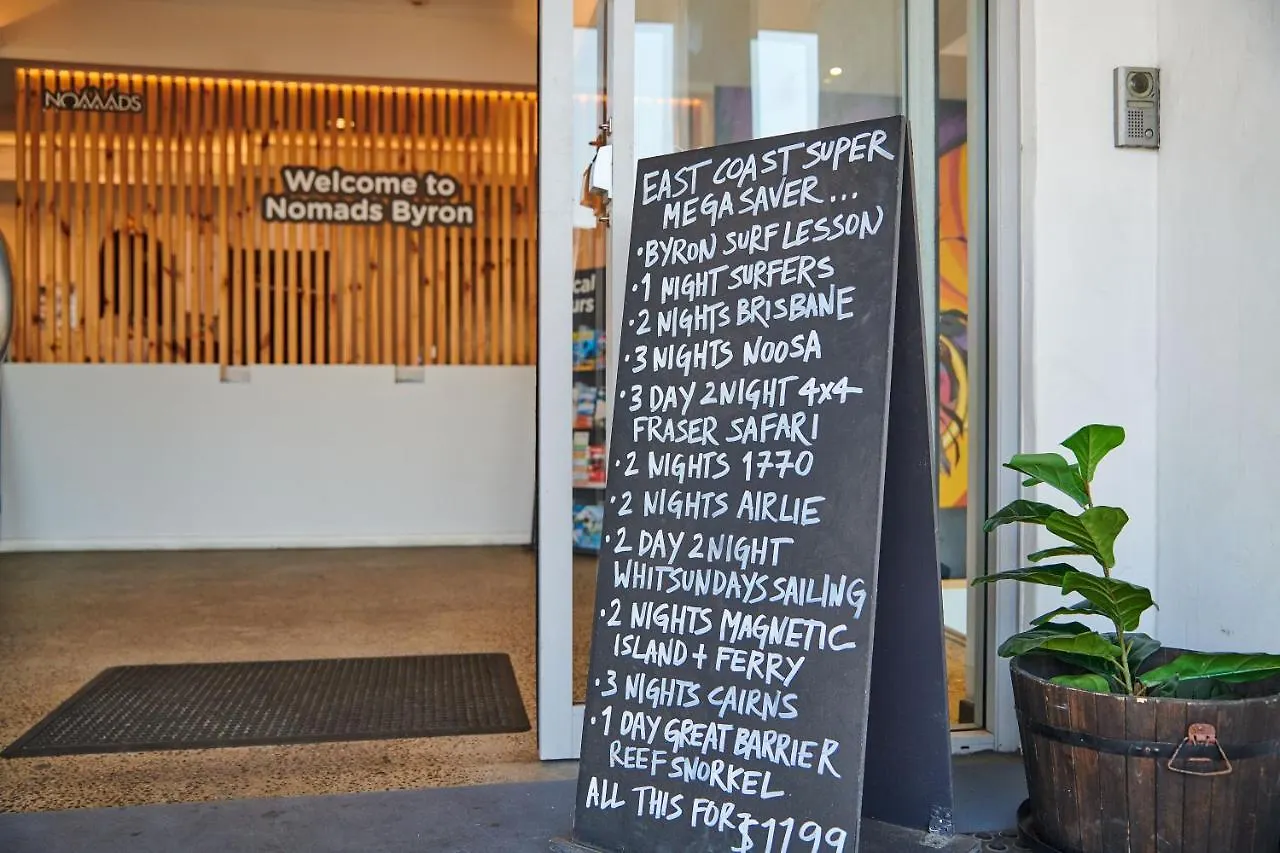 NOMADS
Welcome to
Nomads Byron
EAST COAST SUPER
MEGA SAVER...
• BYRON SURF LESSON
• 1 NIGHT SURFERS
• 2 NIGHTS BRISBANE
• 3 NIGHTS NOOSA
• 3 DAY 2NIGHT 4x4
FRASER SAFARI
• 2 NIGHTS 1770
• 2 NIGHTS AIRLIE
• 2 DAY 2NIGHT
WHITSUNDAYS SAILING
• 2 NIGHTS MAGNETIC
ISLAND + FERRY
• 3 NIGHTS CAIRNS
• 1 DAY GREAT BARRIER
REEF SNORKEL
ALL THIS FOR $1199